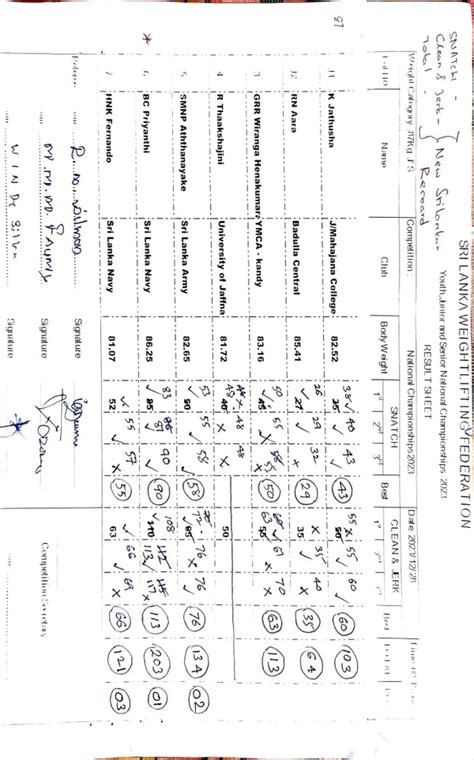 SRI LANKA WEIGHTLIFTING FEDERATION
Youth, Junior and Senior National Championships 2023
RESULT SHEET
SNATCH -
Clean & Jerk -
Total -
New Srilankan
Weight Category 87Kg Competition : National Championships 2023 Date: 2023/12/28
Lot No Name Club Body Weight SNATCH CLEAN & JERK
1st 2nd 3rd Best 1st Best
11 K Jathusha J/Mahajana College 82.52 38 40 43 43 55 x 55 60 60 103
12 RN Aara Badulla Central 85.41 26 27 29 32 x 29 35 x 35 40 x 35 64
3 GRR Wiranga Henakumari YMCA - kandy 83.16 50 45 55 x 55 x 50 63 55 67 70 x 63 113
4 R Thaakshajini University of Jaffna 81.72 40 48 x 48 x 50
5 SMNP Aththanayake Sri Lanka Army 82.65 53 50 55 58 58 72 65 76 76 76 134 02
6 BC Priyanthi Sri Lanka Navy 86.25 83 85 87 90 90 108 110 113 117 x 113 203 01
7 HNK Fernando Sri Lanka Navy 81.07 52 55 57 x 55 63 66 69 x 66 121 03
87
Signature
Signature
Signature
Competition Secretary